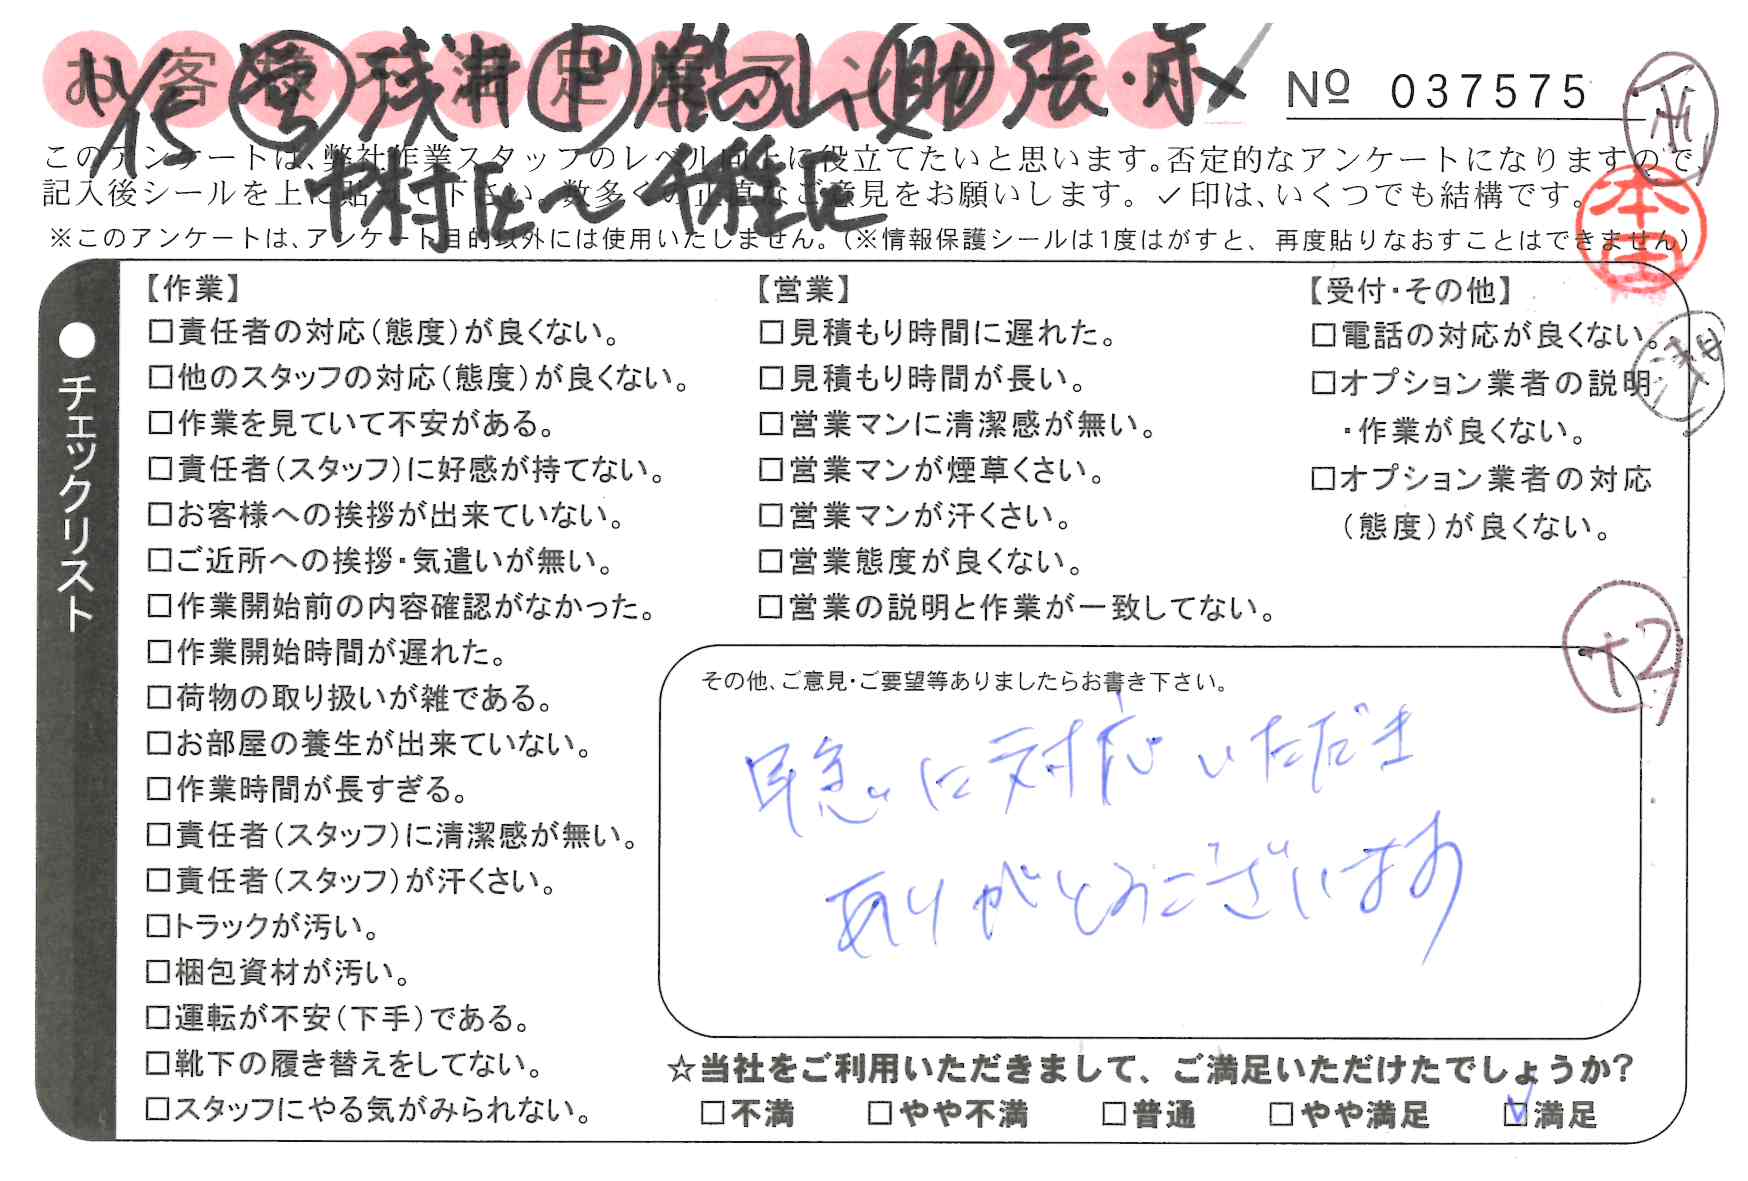 お客様不満足度アンケート
11/15 営 残 洋 ド 嶺のし 助 張・永
No 037575
このアンケートは、弊社作業スタッフのレベル向上に役立てたいと思います。否定的なアンケートになりますので、
記入後シールを上に貼って下さい。数多くの正直なご意見をお願いします。✓印は、いくつでも結構です。
中村区〜千種区
※このアンケートは、アンケート目的以外には使用いたしません。(※情報保護シールは1度はがすと、再度貼りなおすことはできません)
本田
●チェックリスト
【作業】
□責任者の対応(態度)が良くない。
□他のスタッフの対応(態度)が良くない。
□作業を見ていて不安がある。
□責任者(スタッフ)に好感が持てない。
□お客様への挨拶が出来ていない。
□ご近所への挨拶・気遣いが無い。
□作業開始前の内容確認がなかった。
□作業開始時間が遅れた。
□荷物の取り扱いが雑である。
□お部屋の養生が出来ていない。
□作業時間が長すぎる。
□責任者(スタッフ)に清潔感が無い。
□責任者(スタッフ)が汗くさい。
□トラックが汚い。
□梱包資材が汚い。
□運転が不安(下手)である。
□靴下の履き替えをしてない。
□スタッフにやる気がみられない。
【営業】
□見積もり時間に遅れた。
□見積もり時間が長い。
□営業マンに清潔感が無い。
□営業マンが煙草くさい。
□営業マンが汗くさい。
□営業態度が良くない。
□営業の説明と作業が一致してない。
【受付・その他】
□電話の対応が良くない。
□オプション業者の説明
・作業が良くない。
□オプション業者の対応
(態度)が良くない。
+2
その他、ご意見・ご要望等ありましたらお書き下さい。
早急に対応いただき
ありがとうございます
☆当社をご利用いただきまして、ご満足いただけたでしょうか?
□不満 □やや不満 □普通 □やや満足 ☑満足